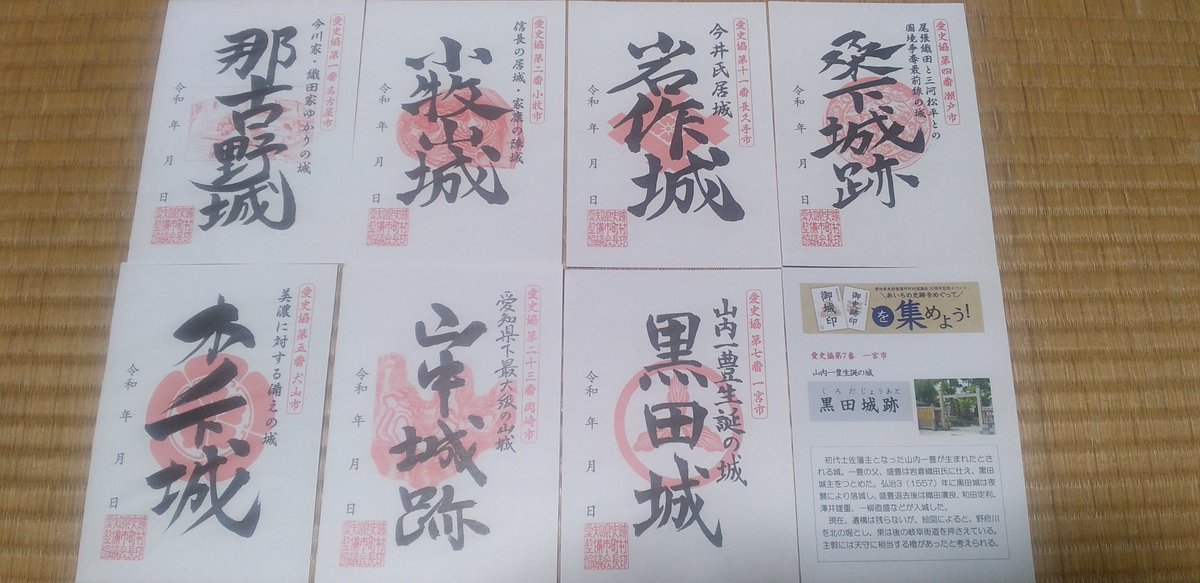 愛史協 第一番 名古屋市
今川家・織田家ゆかりの城
那古野城
令和 年 月 日
愛史協 第二番 小牧市
信長の居城・家康の陣城
小牧山城
令和 年 月 日
愛史協 第十一番 長久手市
今井氏居城
岩作城
令和 年 月 日
愛史協 第四番 瀬戸市
尾張織田と三河松平との
国境争奪最前線の城
桑下城跡
令和 年 月 日
愛史協 第五番 犬山市
美濃に対する備えの城
木ノ下城
令和 年 月 日
愛史協 第二十三番 岡崎市
愛知県下最大級の山城
山中城跡
令和 年 月 日
愛史協 第七番 一宮市
山内一豊生誕の城
黒田城
令和 年 月 日
あいちの史跡をめぐって
御城印
御史跡印
を集めよう!
愛史協第7番 一宮市
山内一豊生誕の城
黒田城跡
初代土佐藩主となった山内一豊が生まれたとさ
れる城。一豊の父、盛豊は岩倉織田氏に仕え、黒田
城主をつとめた。弘治3(1557)年に黒田城は夜
襲により落城し、盛豊退去後は織田廣良、和田定利、
澤井雄重、一柳直盛などが入城した。
現在、遺構は残らないが、絵図によると、野府川
を北の堀とし、東は後の岐阜街道を押さえている。
主郭には天守に相当する櫓があったと考えられる。